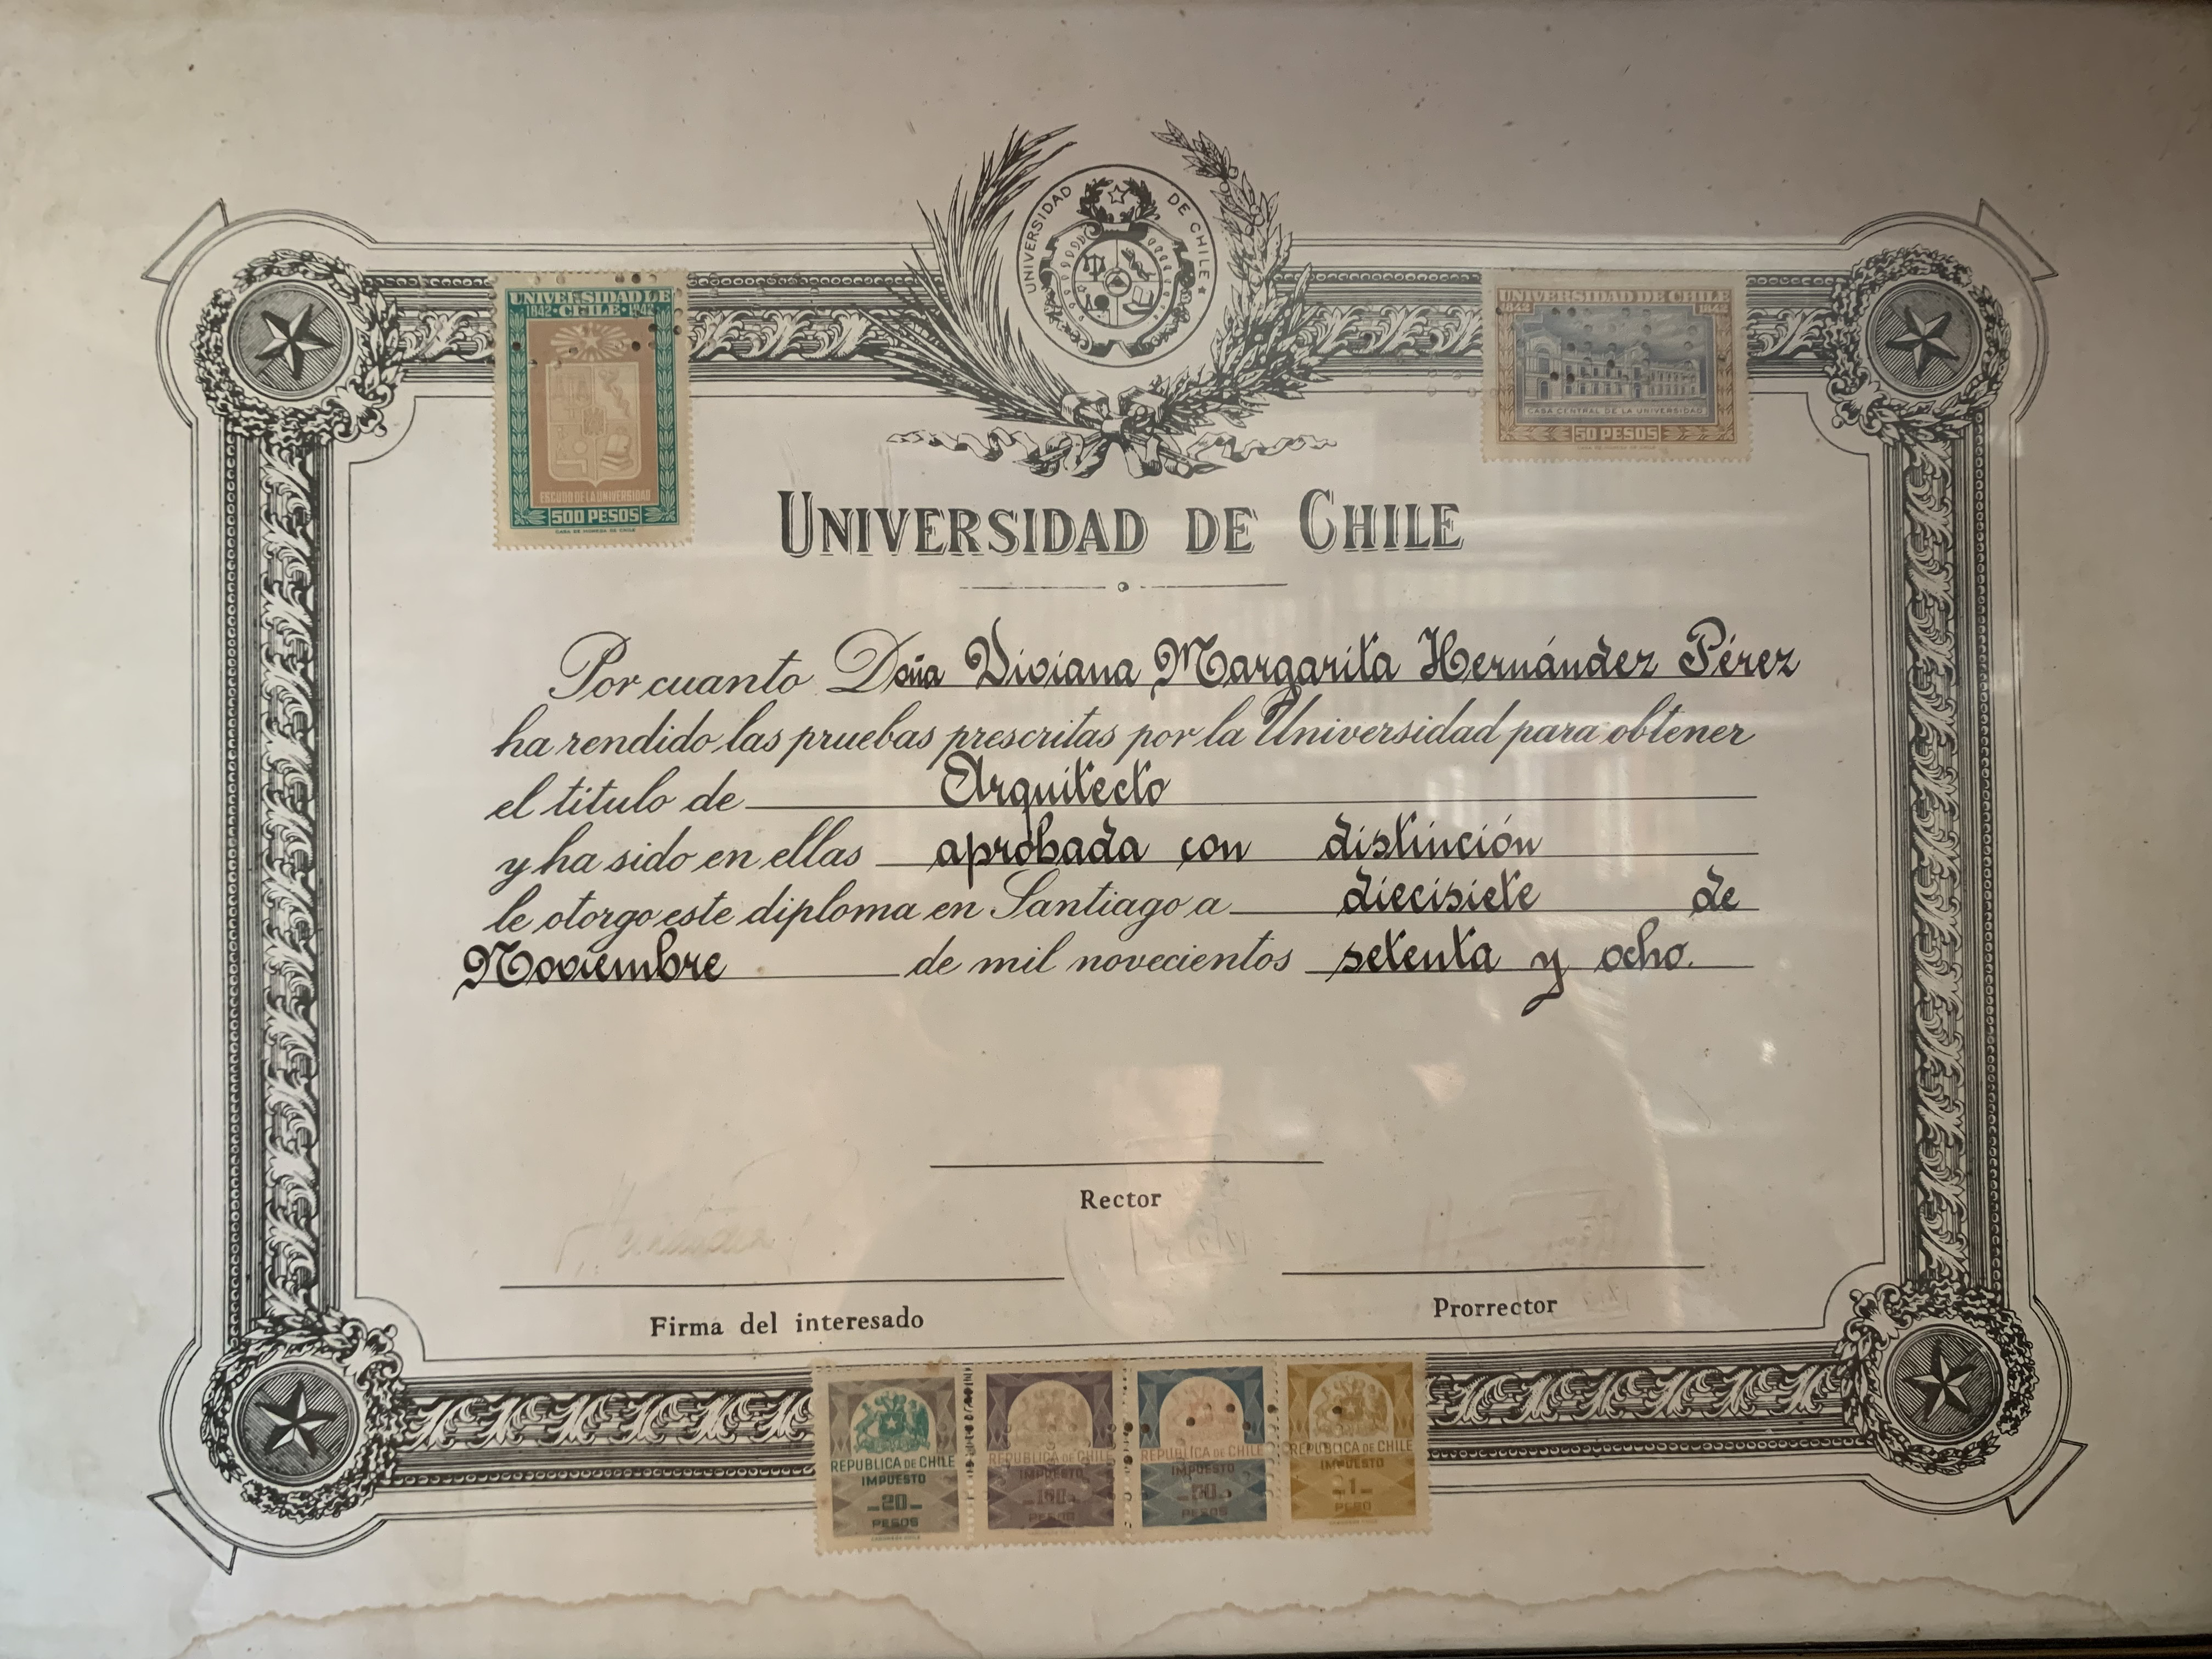 UNIVERSIDAD DE CHILE
UNIVERSIDAD DE
1842 · CHILE · 1942
ESCUDO DE LA UNIVERSIDAD
500 PESOS
CASA DE MONEDA DE CHILE
UNIVERSIDAD DE CHILE
1842 1942
CASA CENTRAL DE LA UNIVERSIDAD
50 PESOS
CASA DE MONEDA DE CHILE
UNIVERSIDAD DE CHILE
Por cuanto Doña Viviana Margarita Hernández Pérez
ha rendido las pruebas prescritas por la Universidad para obtener
el titulo de Arquitecto
y ha sido en ellas aprobada con distinción
le otorgo este diploma en Santiago a diecisiete de
Noviembre de mil novecientos setenta y ocho.
Rector
Firma del interesado
Prorrector
REPUBLICA DE CHILE
IMPUESTO
20
PESOS
REPUBLICA DE CHILE
IMPUESTO
PESOS
REPUBLICA DE CHILE
IMPUESTO
PESOS
REPUBLICA DE CHILE
IMPUESTO
1
PESO